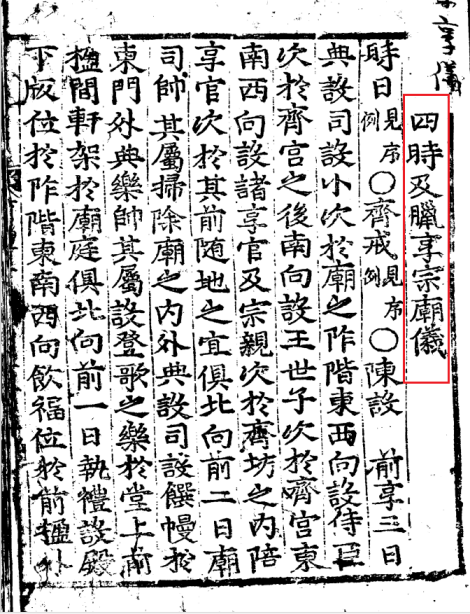 享儀
四時及臘享宗廟儀
時日見序例○齊戒見序例○陳設 前享三日
典設司設小次於廟之阼階東西向設侍臣
次於齊宮之後南向設王世子次於齊宮東
南西向設諸享官及宗親次於齊坊之內陪
享官次於其前隨地之宜俱北向前二日廟
司帥其屬掃除廟之內外典設司設饌幔於
東門外典樂帥其屬設登歌之樂於堂上前
楹間軒架於廟庭俱北向前一日執禮設殿
下版位於阼階東南西向飲福位於前楹外